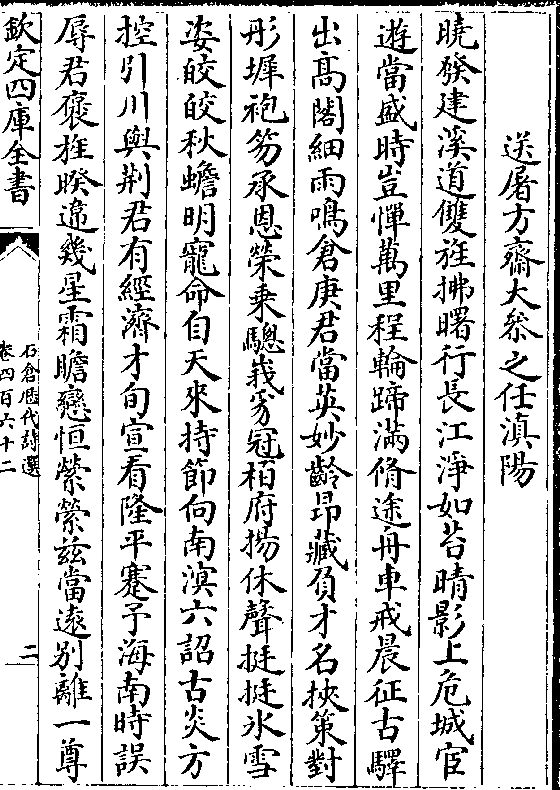 送屠方齋大叅之任滇陽
曉發建溪道雙旌拂曙行長江淨如苔晴影上危城宦
遊當盛時豈憚萬里程輪蹄滿脩途舟車戒晨征古驛
出髙閣細雨鳴倉庚君當英妙齡昂藏負才名挾策對
彤墀袍笏承恩榮乗驄峩豸冠栢府揚休聲挺挺氷雪
姿皎皎秋蟾明寵命自天來持節向南滇六詔古炎方
控引川與荆君有經濟才旬宣看隆平蹇予海南時誤
辱君褒旌暌違幾星霜瞻戀恒縈縈兹當逺别離一尊
欽定四庫全書
石倉歴代詩選
卷四百六十二
二